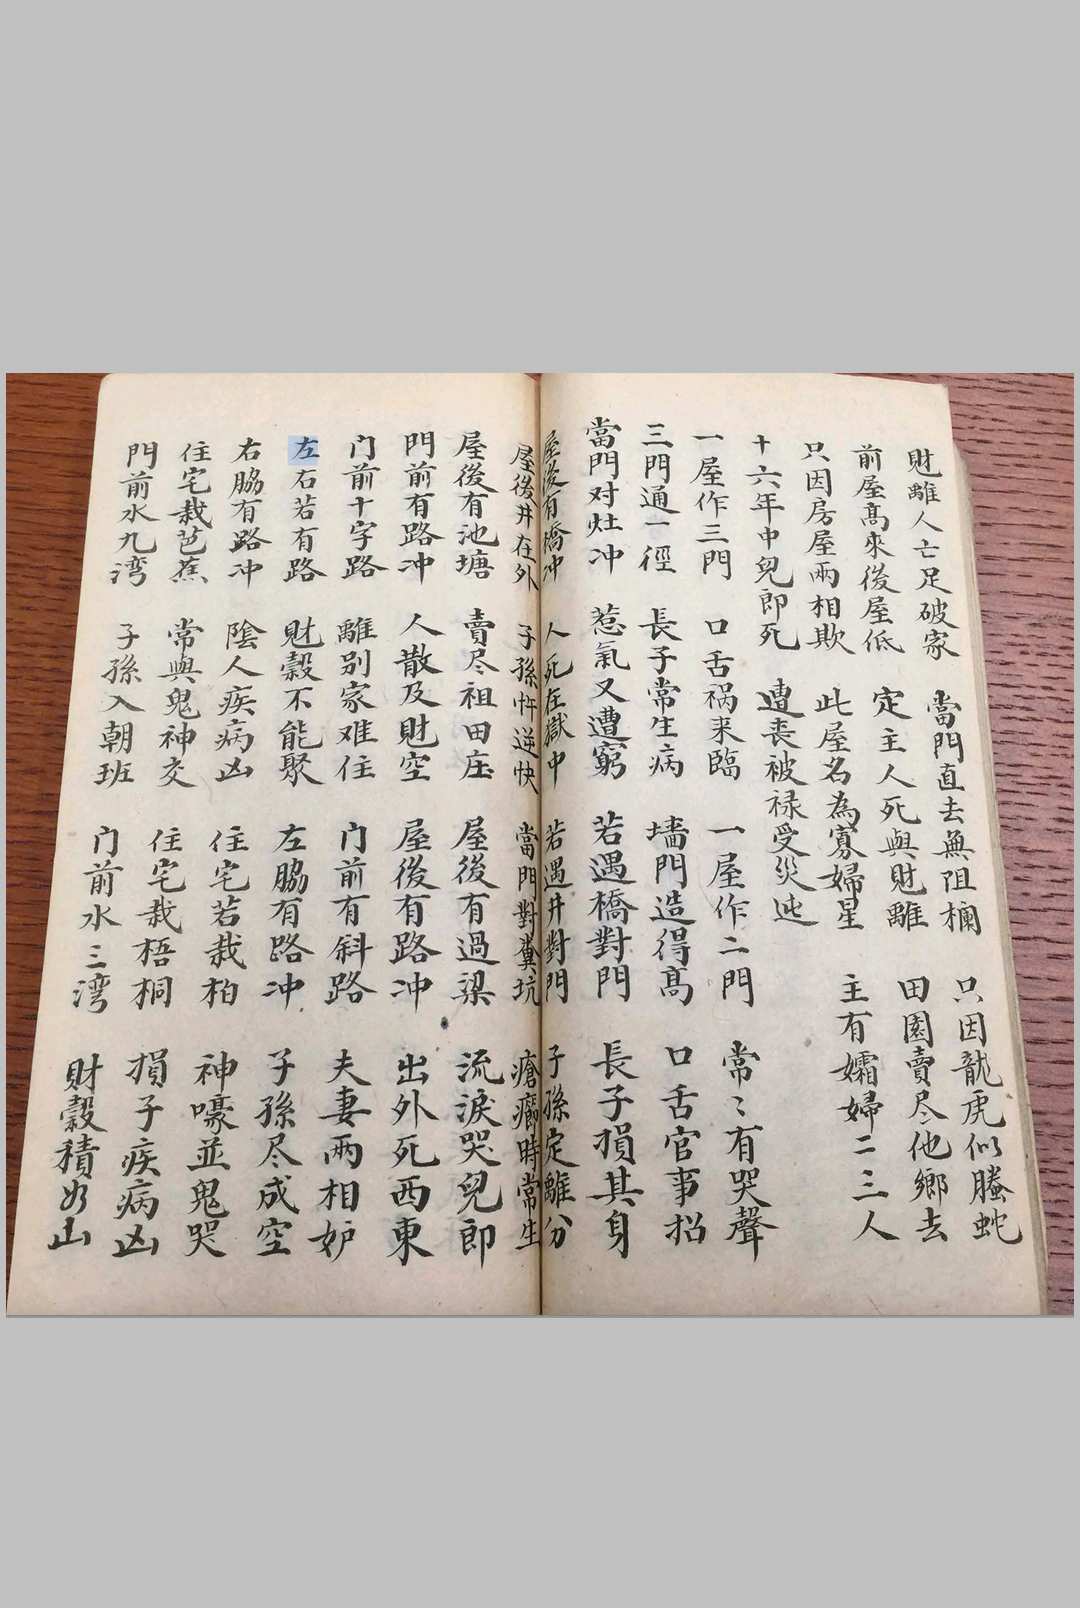 財離人亡足破家 當門直去無阻欄 只因龍虎似螣蛇
前屋髙來後屋低 定主人死與財離 田園賣尽他鄉去
只因房屋兩相欺 此屋名為寡婦星 主有孀婦二三人
十六年中兒即死 遭喪被禄受災迍
一屋作三門 口舌祸来臨 一屋作二門 常〻有哭聲
三門通一徑 長子常生病 墻門造得髙 口舌官事招
當門对灶冲 惹氣又遭窮 若遇橋對門 長子損其身
屋後有橋冲 人死在獄中 若遇井對門 子孫定離分
屋後井在外 子孫忤逆快 當門對糞坑 瘡癤時常生
屋後有池塘 賣尽祖田庄 屋後有過梁 流淚哭兒郎
門前有路冲 人散及財空 屋後有路冲 出外死西東
门前十字路 離別家难住 门前有斜路 夫妻兩相妒
左右若有路 財穀不能聚 左脇有路冲 子孫尽成空
右脇有路冲 陰人疾病凶 住宅若栽柏 神嚎並鬼哭
住宅栽芭蕉 常與鬼神交 住宅栽梧桐 損子疾病凶
門前水九湾 子孫入朝班 门前水三湾 財穀積如山